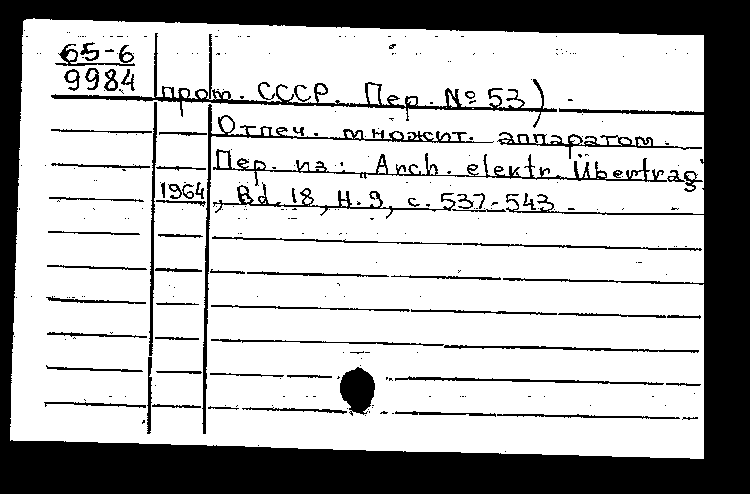 65-6
9984
пром. СССР. Пер. № 53)
Отпеч. множит. аппаратом.
Пер. из: „Arch. elektr. Übertrag
1964, Bd. 18, H. 9, с. 537-543